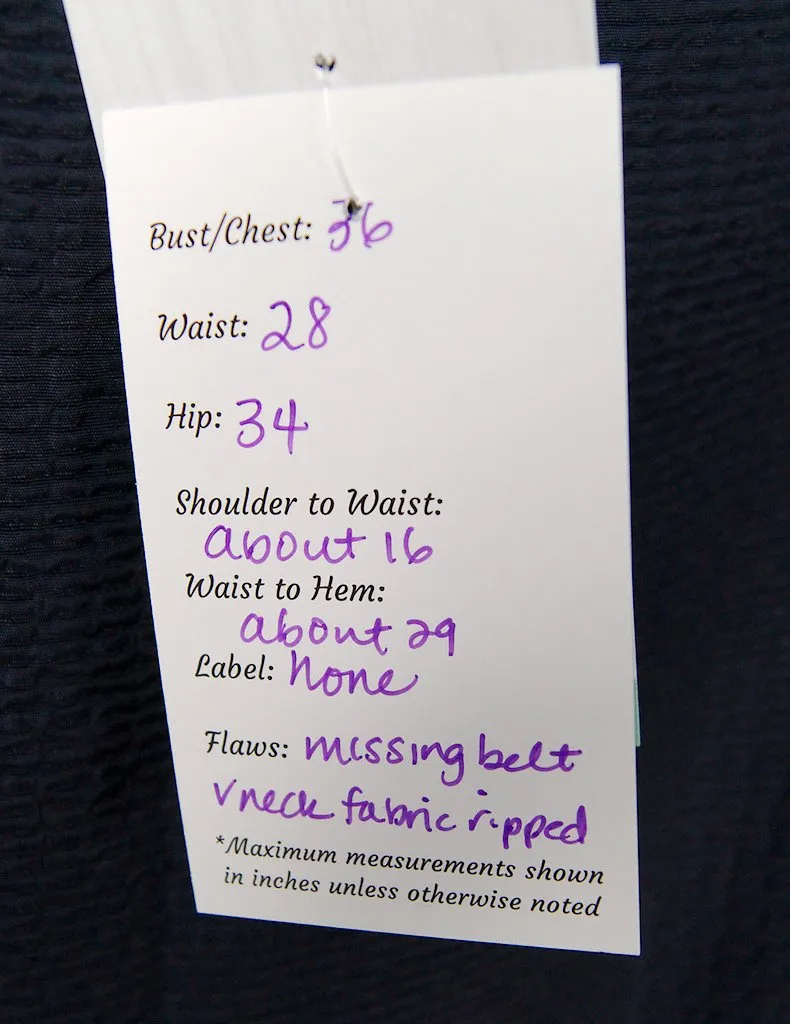 Bust/Chest: 36
Waist: 28
Hip: 34
Shoulder to Waist:
about 16
Waist to Hem:
about 29
Label: none
Flaws: missing belt
vneck fabric ripped
*Maximum measurements shown
in inches unless otherwise noted